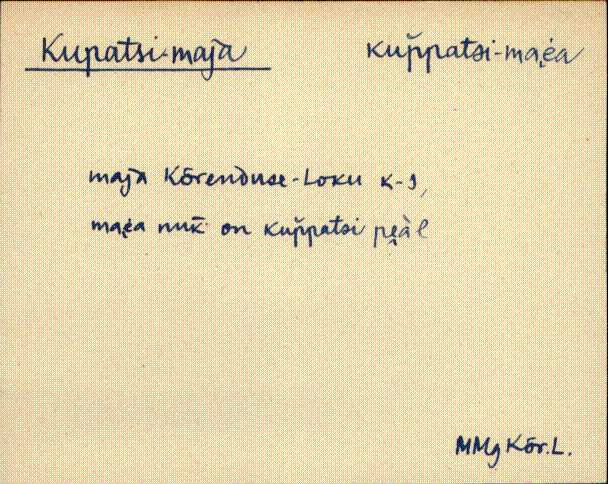 Kupatsi-maja kup̆patsi-mai̯ėa
maja Kõrenduse-Loku k-s,
mai̯ėa nuk̄ on kup̆patsi pi̯àl
MMg Kõr.L.